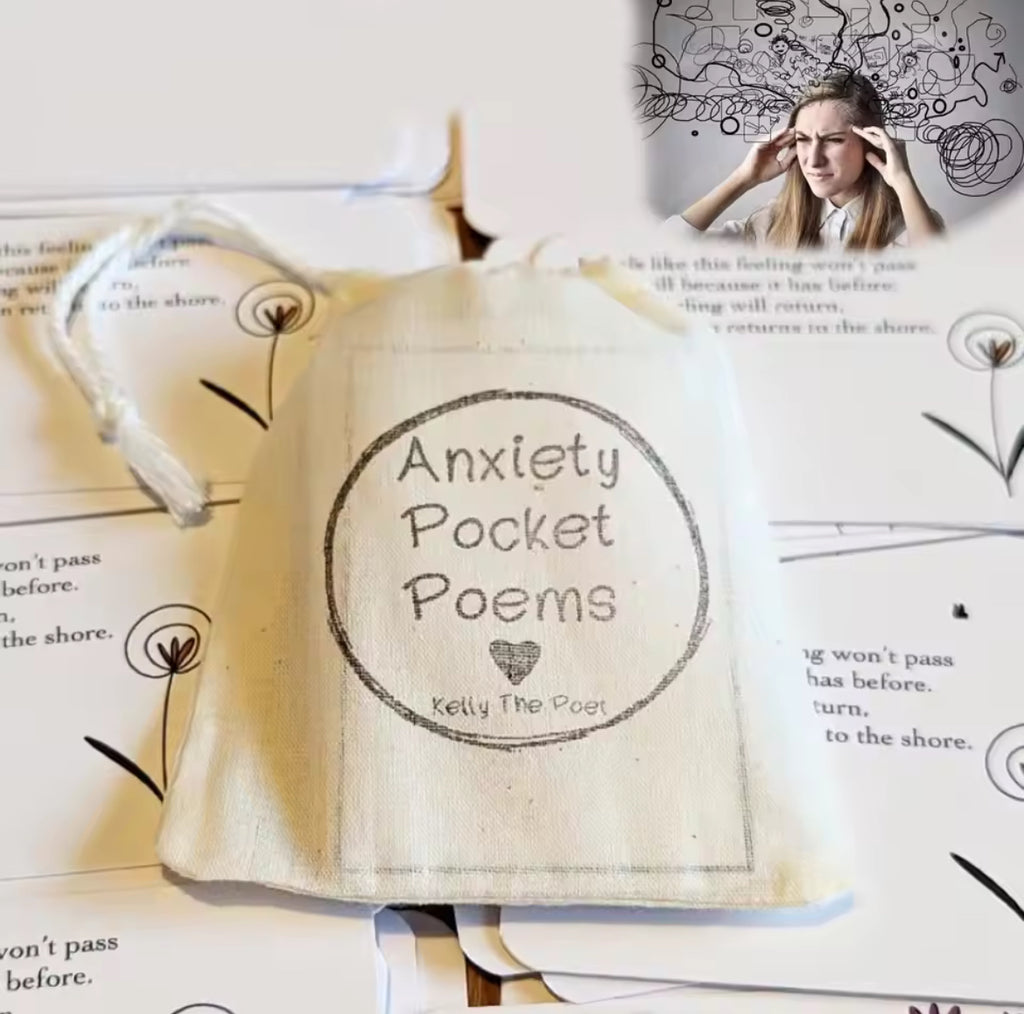 this feelin
ecause before
ng wil rn,
n ret to the shore.
like this feeling won't pass
ill because it has before.
ling will return,
returns to the shore.
Anxiety
Pocket
Poems
Kelly The Poet
on't pass
before.
n,
the shore.
ng won't pass
has before.
turn,
to the shore.
won't pass
before.